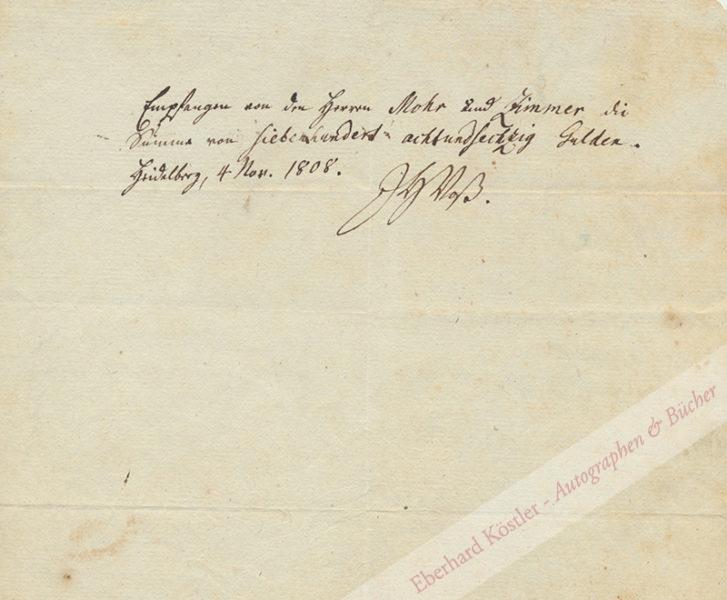 Empfangen von den Herren Mohr und Zimmer die
Summe von siebenhundert achtundsechzig Gulden.
Heidelberg, 4 Nov. 1808.
JHVoß.
Eberhard Köstler - Autographen & Bücher